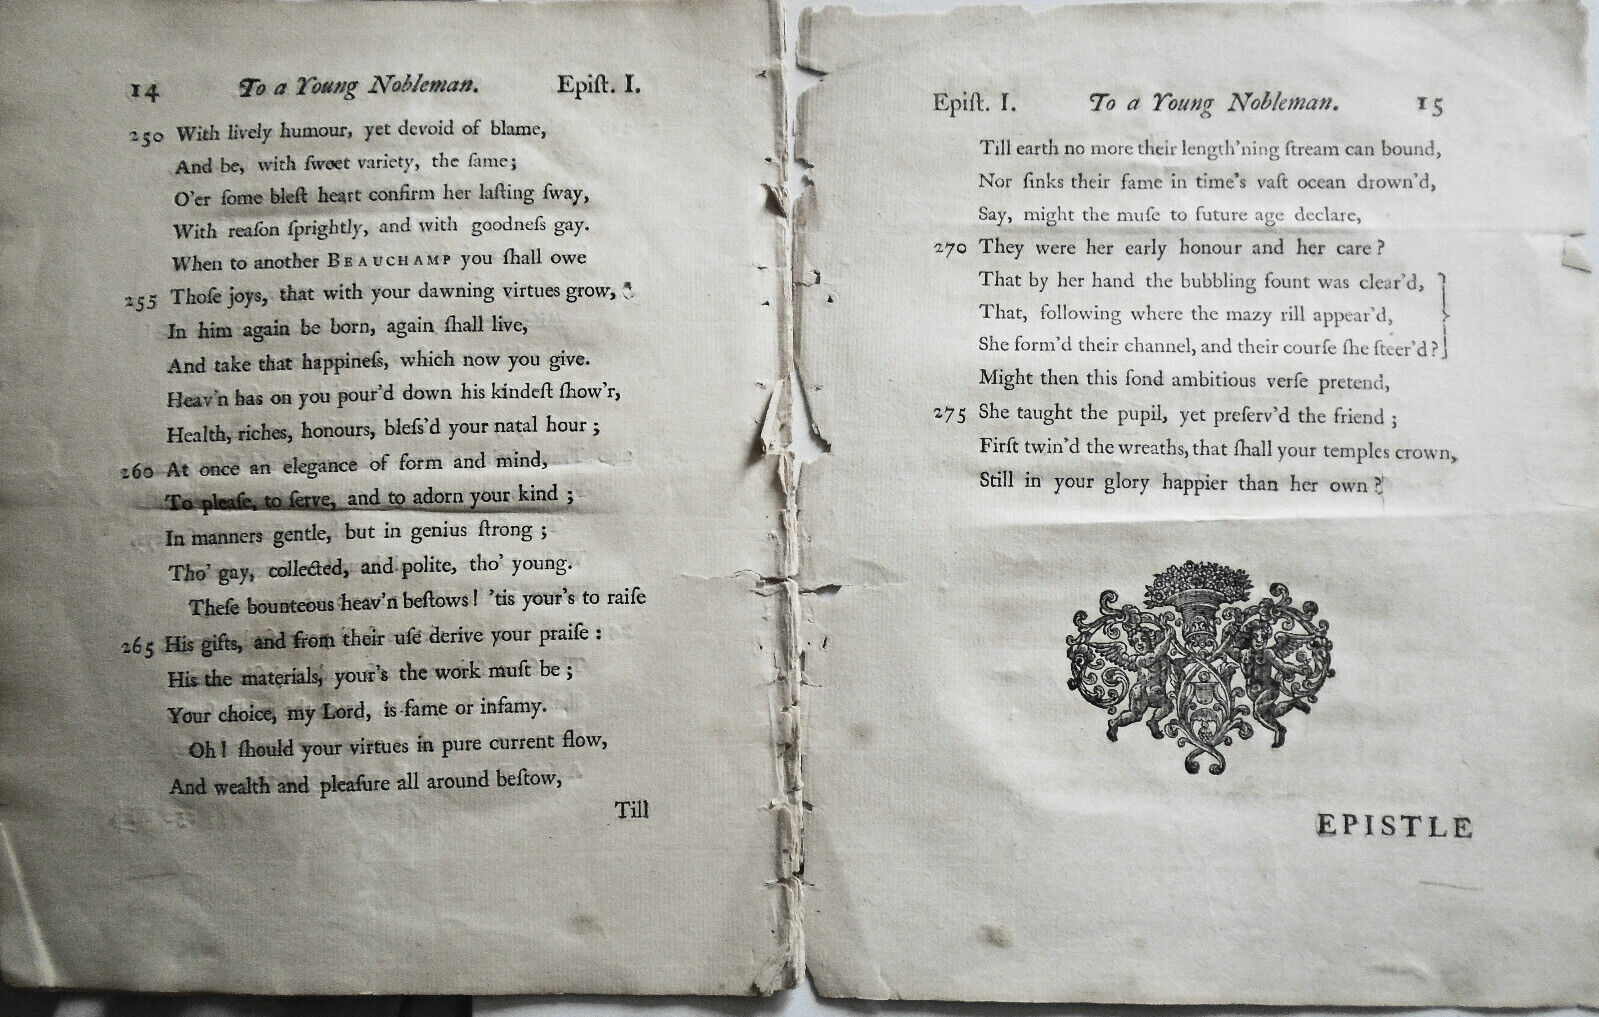 14 To a Young Nobleman. Epiſt. I.
250 With lively humour, yet devoid of blame,
And be, with ſweet variety, the ſame;
O'er ſome bleſt heart confirm her laſting ſway,
With reaſon ſprightly, and with goodneſs gay.
When to another BEAUCHAMP you ſhall owe
255 Thoſe joys, that with your dawning virtues grow,
In him again be born, again ſhall live,
And take that happineſs, which now you give.
Heav'n has on you pour'd down his kindeſt ſhow'r,
Health, riches, honours, bleſs'd your natal hour;
260 At once an elegance of form and mind,
To pleaſe, to ſerve, and to adorn your kind;
In manners gentle, but in genius ſtrong;
Tho' gay, collected, and polite, tho' young.
Theſe bounteous heav'n beſtows! 'tis your's to raiſe
265 His gifts, and from their uſe derive your praiſe:
His the materials, your's the work muſt be;
Your choice, my Lord, is fame or infamy.
Oh! ſhould your virtues in pure current flow,
And wealth and pleaſure all around beſtow,
Till
Epiſt. I. To a Young Nobleman. 15
Till earth no more their length'ning ſtream can bound,
Nor ſinks their fame in time's vaſt ocean drown'd,
Say, might the muſe to future age declare,
270 They were her early honour and her care?
That by her hand the bubbling fount was clear'd,
That, following where the mazy rill appear'd,
She form'd their channel, and their courſe ſhe ſteer'd?
Might then this fond ambitious verſe pretend,
275 She taught the pupil, yet preſerv'd the friend;
Firſt twin'd the wreaths, that ſhall your temples crown,
Still in your glory happier than her own?
EPISTLE